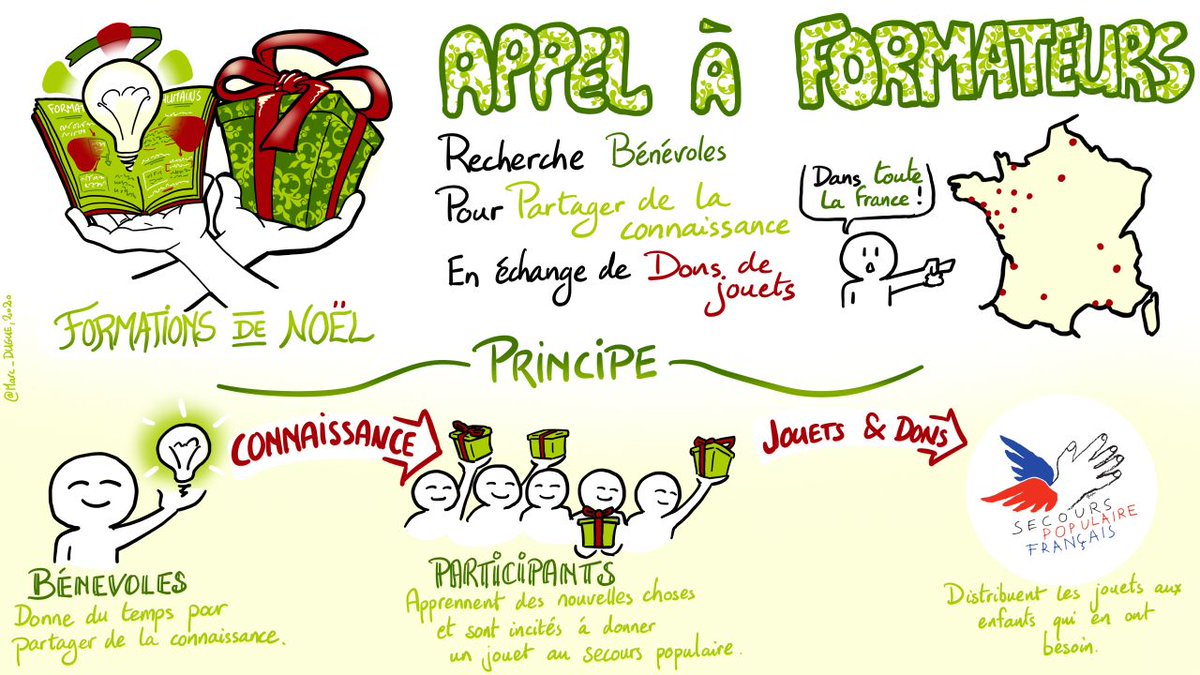 FORMATIONS DE NOËL
APPEL À FORMATEURS
Recherche Bénévoles
Pour Partager de la
connaissance
En échange de Dons de
jouets
Dans toute
La France !
@Marc_DUGUE, 2020
PRINCIPE
CONNAISSANCE
JOUETS & DONS
BÉNEVOLES
Donne du temps pour
partager de la connaissance.
PARTICIPANTS
Apprennent des nouvelles choses
et sont incités á donner
un jouet au secours populaire.
SECOURS
POPULAIRE
FRANÇAIS
Distribuent les jouets aux
enfants qui en ont
besoin.